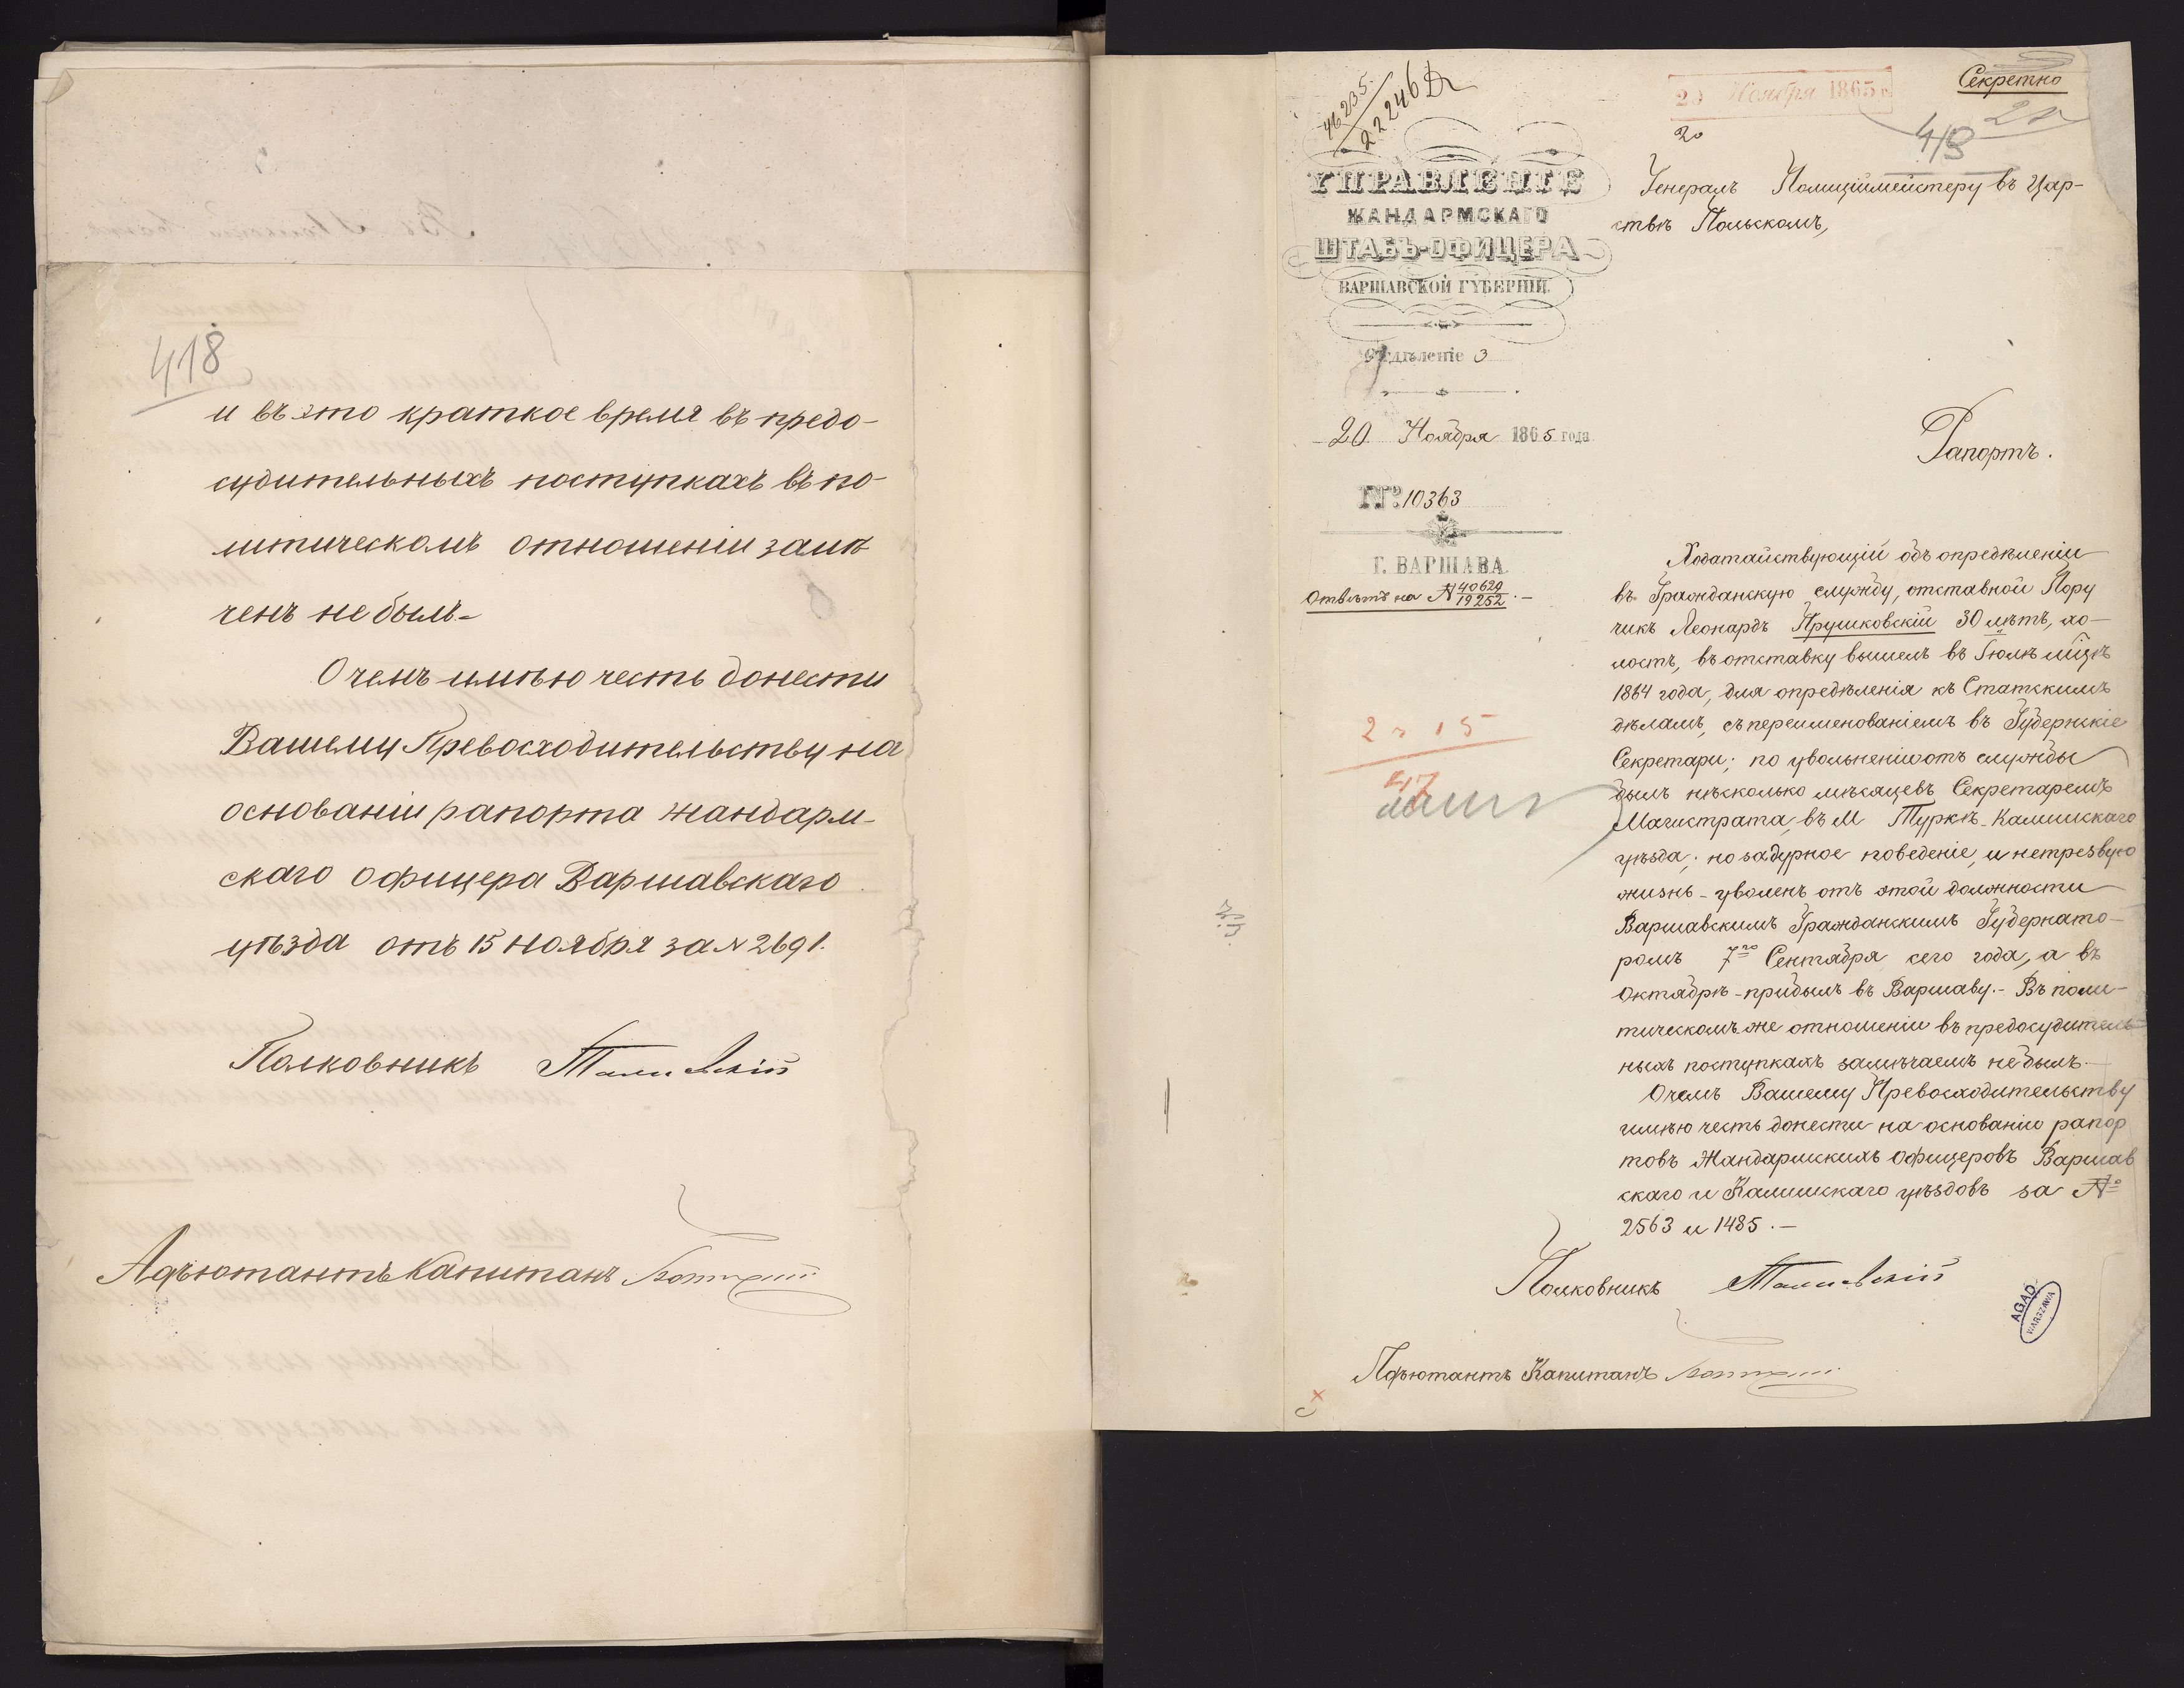 418
и въ это краткое время въ предо-
судительныхъ поступкахъ въ по-
литическомъ отношеніи замѣ
ченъ не былъ.
О чемъ имѣю честь донести
Вашему Превосходительству на
основаніи рапорта жандарм-
скаго офицера Варшавскаго
уѣзда отъ 15 ноября за N 2691.
Полковникъ
Адъютантъ Капитанъ
46235
22246
20 Ноября 1865 г.
Секретно
20
418
УПРАВЛЕНІЕ
ЖАНДАРМСКАГО
ШТАБЪ-ОФИЦЕРА
ВАРШАВСКОЙ ГУБЕРНІИ.
Отдѣленіе 3
20 Ноября 1865 года
№ 10363
Г. ВАРШАВА.
Отвѣтъ на № 40629
19252.-
Генералъ Полиціймейстеру въ Цар-
ствѣ Польскомъ,
Рапортъ.
Ходатайствующій объ опредѣленіи
въ Гражданскую службу, отставной Пору
чикъ Леонардъ Прушковскій 30 лѣтъ, хо-
лостъ, въ отставку вышелъ въ Іюлѣ м͠цѣ
1864 года, для опредѣленія къ Статскимъ
дѣламъ, съ переименованіемъ въ Губернскіе
Секретари; по увольненіи отъ службы
былъ нѣсколько мѣсяцевъ Секретаремъ
Магистрата, въ М Туркѣ-Калишскаго
уѣзда; но за дурное поведеніе, и нетрезвую
жизнь - уволенъ отъ этой должности
Варшавскимъ Гражданскимъ Губернато-
ромъ 7го Сентября сего года, а въ
Октябрѣ - прибылъ въ Варшаву.- Въ поли-
тическомъ же отношеніи въ предосудитель-
ныхъ поступкахъ замѣчаемъ не былъ.-
О чемъ Вашему Превосходительству
имѣю честь донести на основаніи рапор
товъ Жандармскихъ Офицеровъ Варшав
скаго и Калишскаго уѣздовъ за №
2563 и 1485.-
Полковникъ
Адъютантъ Капитанъ
AGAD
WARSZAWA